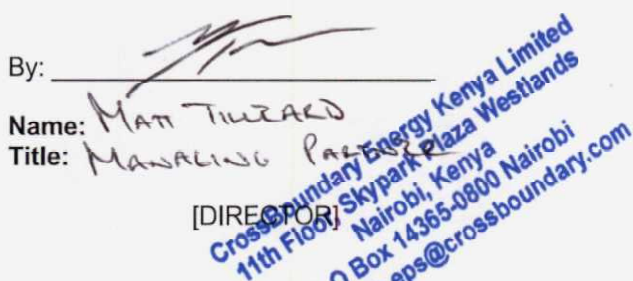 By:
Name: MATT TILLEARD
Title: MANAGING PARTNER
[DIRECTOR]
CrossBoundary Energy Kenya Limited
11th Floor, Skypark Plaza Westlands
Nairobi, Kenya
O Box 14365-0800 Nairobi
eps@crossboundary.com